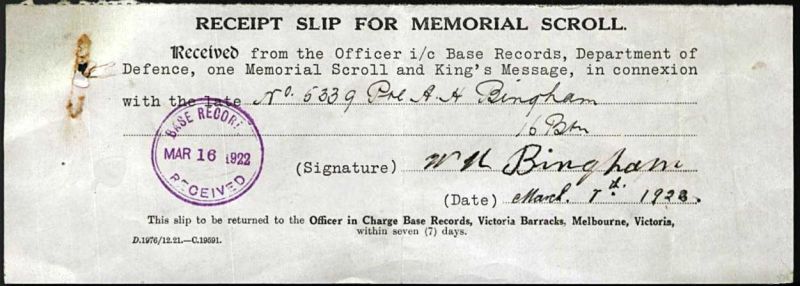 RECEIPT SLIP FOR MEMORIAL SCROLL.
Received from the Officer i/c Base Records, Department of
Defence, one Memorial Scroll and King's Message, in connexion
with the late No. 5339 Pte A H Bingham
16 Btn
BASE RECORDS
MAR 16 1922
RECEIVED
(Signature) W H Bingham
(Date) March 7th. 1922.
This slip to be returned to the Officer in Charge Base Records, Victoria Barracks, Melbourne, Victoria,
within seven (7) days.
D.1976/12.21.—C.19691.